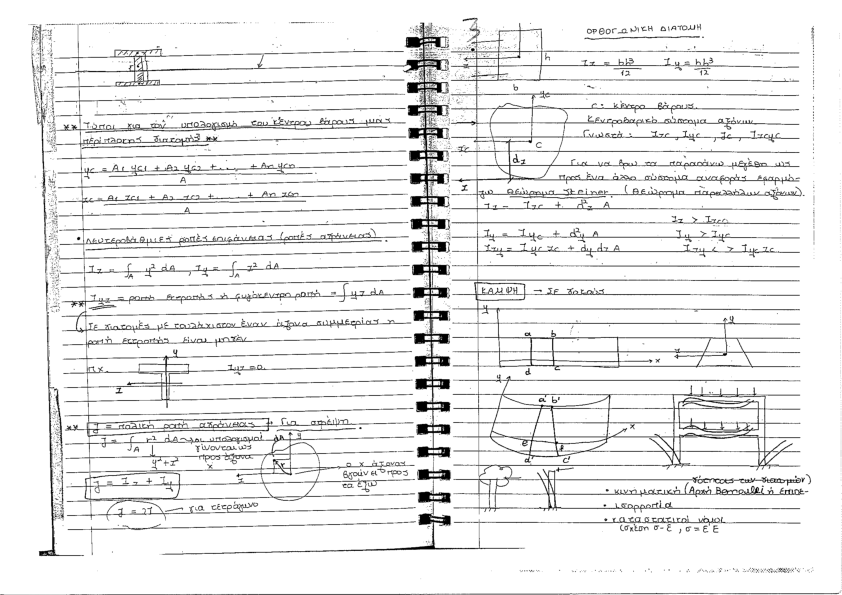 ** Τύποι για τον υπολογισμό του κέντρου βάρους μιας
περίπλοκης διατομής **
yc = A1 yc1 + A2 yc2 + ..... + An ycn
A
zc = A1 zc1 + A2 zc2 + .... + An zcn
A
• Δευτεροβάθμιες ροπές επιφάνειας (ροπές αδράνειας).
Iz = ∫A y² dA , Iy = ∫A z² dA
** Iyz = ροπή εκτροπής ή φυγόκεντρη ροπή = ∫ yz dA
Σε διατομές με τουλάχιστον έναν άξονα συμμετρίας η
ροπή εκτροπής είναι μηδέν
πχ.
y
z
Iyz = 0.
** J = πολική ροπή αδράνειας → Για στρέψη
J = ∫A r² dA → οι υπολογισμοί
γίνονται ως
προς άξονα
x
y² + z²
J = Iz + Iy
J = 2I
για τετράγωνο
dA
y
r
z
ο x άξονας
βγαίνει προς
τα έξω
3
ΟΡΘΟΓΩΝΙΚΗ ΔΙΑΤΟΜΗ
z
h
b
Iz = bh³
12
Iy = hb³
12
yc
c: κέντρο βάρους.
Κεντροβαρικό σύστημα αξόνων.
Γνωστά: Izc, Iyc, Jc, Izcyc
zc
c
dz
z
Για να βρω τα παραπάνω μεγέθη ως
προς ένα άλλο σύστημα αναφοράς εφαρμό-
ζω Θεώρημα Steiner. (Θεώρημα παραλλήλων αξόνων).
Iz = Izc + d²z A
Iz > Izc
Iy = Iyc + d²y A
Iy > Iyc
Izy = Iyc zc + dy dz A
Izy c > Iyc zc
ΚΑΜΨΗ → Σε δοκούς
y
a b
d c
x
y
z
y
a' b'
e f
d' c'
x
• κινηματική (Αρχή Bernoulli ή επιπε-
• ισορροπία
• καταστατικοί νόμοι
(σχέση σ-ε , σ = E ε